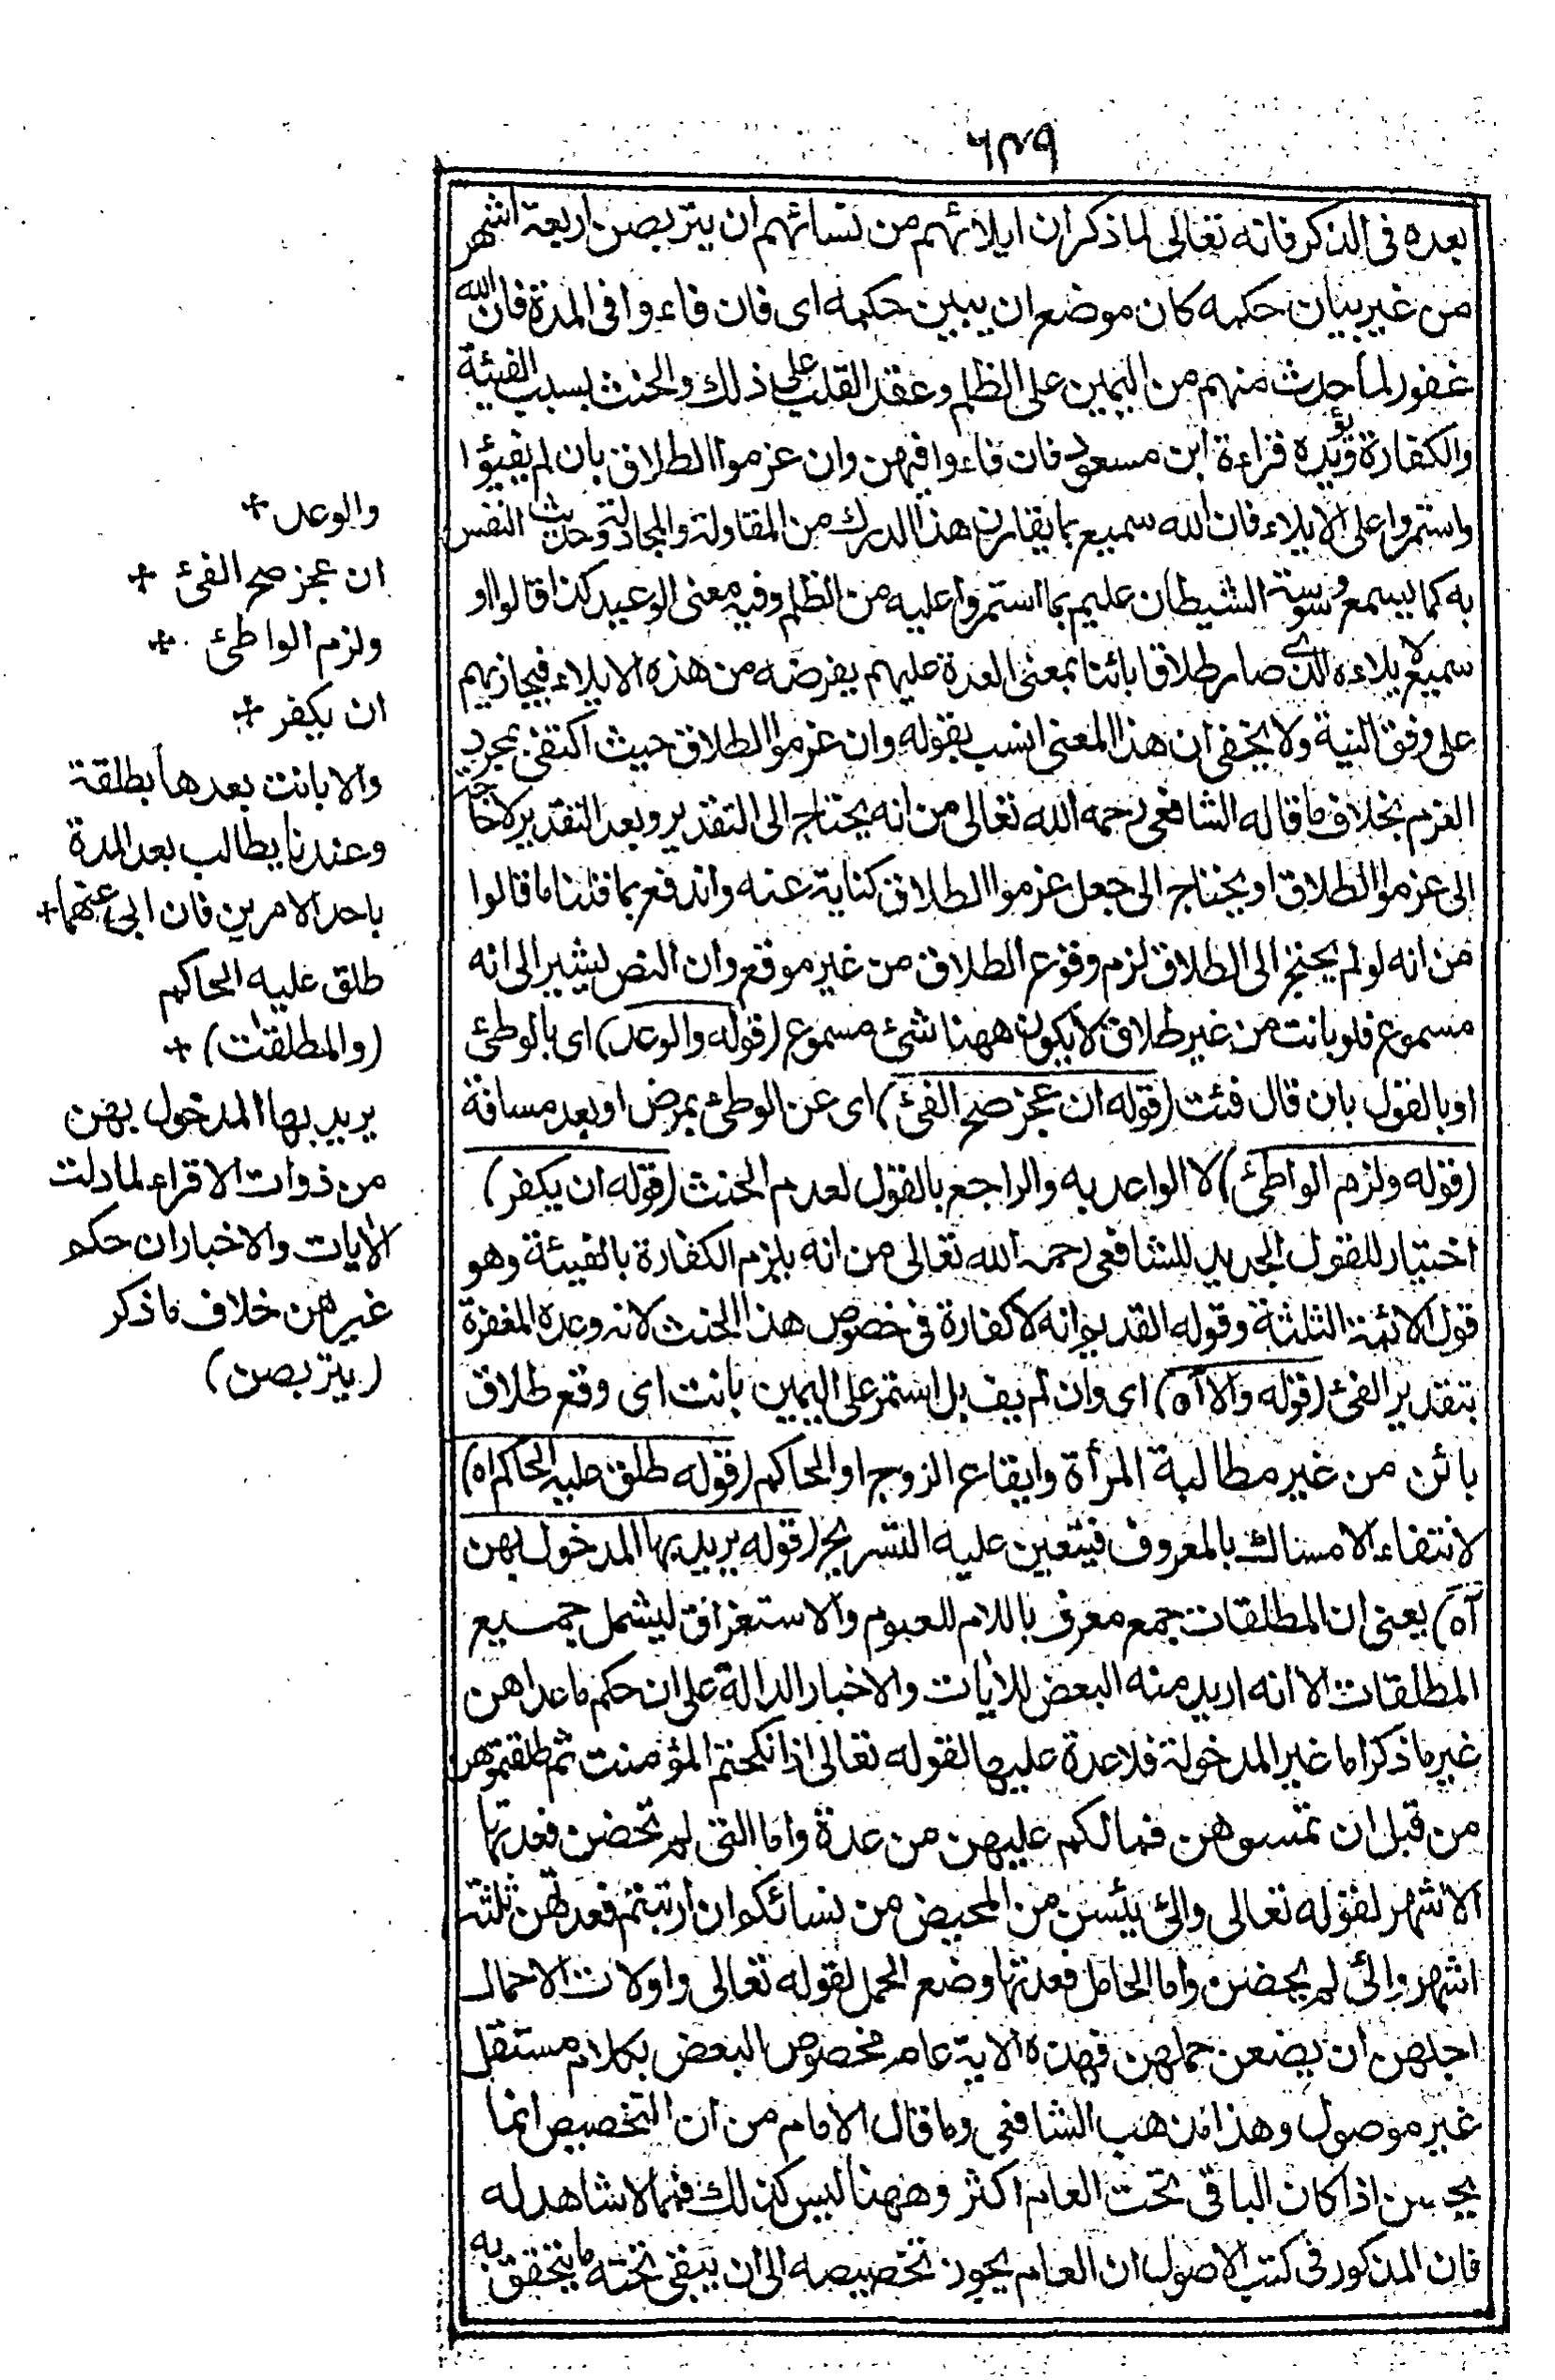 ٦٤٩
بعده فى الذكر فانه تعالى لما ذكر ان ايلائهم من نسائهم ان يتربصن اربعة اشهر
من غير بيان حكمه كان موضع ان يبين حكمه اى فان فاءوا فى المدة فان الله
غفور لما حدث منهم من اليمين على الظلم وعقد القلب على ذلك والحنث بسبب الفيئة
والكفارة ويؤيده قراءة ابن مسعود فان فاءوا فيهن وان عزموا الطلاق بان لم يفيؤا
واستمروا على الايلاء فان الله سميع بما يقارن هذا الدرك من المقاولة والمجادلة وحديث النفس
به كما يسمع وسوسة الشيطان عليم بما استمروا عليه من الظلم وفيه معنى الوعيد كذا قالوا او
سميع لايلاءه الذى صار طلاقا بائنا بمعنى العدة عليهم بفرضه من هذه الايلاء فيجازيهم
على وفق النية ولا يخفى ان هذا المعنى انسب بقوله وان عزموا الطلاق حيث اكتفى بمجرد
العزم بخلاف ما قاله الشافعى رحمه الله تعالى من انه يحتاج الى التقدير وبعد التقدير لا حاجة
الى عزموا الطلاق او يحتاج الى جعل عزموا الطلاق كناية عنه واندفع بما قلنا ما قالوا
من انه لو لم يحتج الى الطلاق لزم وقوع الطلاق من غير موقع وان النص يشير الى انه
مسموع فلو بانت من غير طلاق لا يكون ههنا شئ مسموع (قوله والوعد) اى بالوطئ
او بالقول بان قال فئت (قوله ان عجز صح الفئ) اى عن الوطئ بمرض او بعد مسافة
(قوله ولزم الواطئ) لا الواعد به والراجع بالقول لعدم الحنث (قوله ان يكفر)
اختيار للقول الجديد للشافعى رحمه الله تعالى من انه يلزم الكفارة بالفيئة وهو
قول الائمة الثلثة وقوله القديم انه لا كفارة فى خصوص هذا الحنث لانه وعده المغفرة
بتقدير الفئ (قوله والا آه) اى وان لم يف بل استمر على اليمين بانت اى وقع طلاق
بائن من غير مطالبة المرأة وايقاع الزوج او الحاكم (قوله طلق عليه الحاكم اه)
لانتفاء الامساك بالمعروف فيتعين عليه التسريح (قوله يريد بها المدخول بهن
آه) يعنى ان المطلقات جمع معرف باللام للعموم والاستغراق ليشمل جميع
المطلقات الا انه اريد منه البعض للايات والاخبار الدالة على ان حكم ما عداهن
غير ما ذكر اما غير المدخولة فلا عدة عليها لقوله تعالى اذا نكحتم المؤمنت ثم طلقتموهن
من قبل ان تمسوهن فما لكم عليهن من عدة واما التى لم تحضن فعدتها
الاشهر لقوله تعالى والئ يئسن من المحيض من نسائكم ان ارتبتم فعدتهن ثلثة
اشهر والئ لم يحضن واما الحامل فعدتها وضع الحمل لقوله تعالى واولات الاحمال
اجلهن ان يضعن حملهن فهذه الاية عام مخصوص البعض بكلام مستقل
غير موصول وهذا مذهب الشافعى وما قال الامام من ان التخصيص انما
يحسن اذا كان الباقى تحت العام اكثر وههنا ليس كذلك فمما لا شاهد له
فان المذكور فى كتب الاصول ان العام يجوز تخصيصه الى ان يبقى تحته ما يتحقق به
والوعد +
ان عجز صح الفئ +
ولزم الواطئ +
ان يكفر +
والا بانت بعدها بطلقة
وعندنا يطالب بعد المدة
باحد الامرين فان ابى عنهما +
طلق عليه الحاكم
(والمطلقت) +
يريد بها المدخول بهن
من ذوات الاقراء لما دلت
الايات والاخبار ان حكم
غيرهن خلاف ما ذكر
(يتربصن)